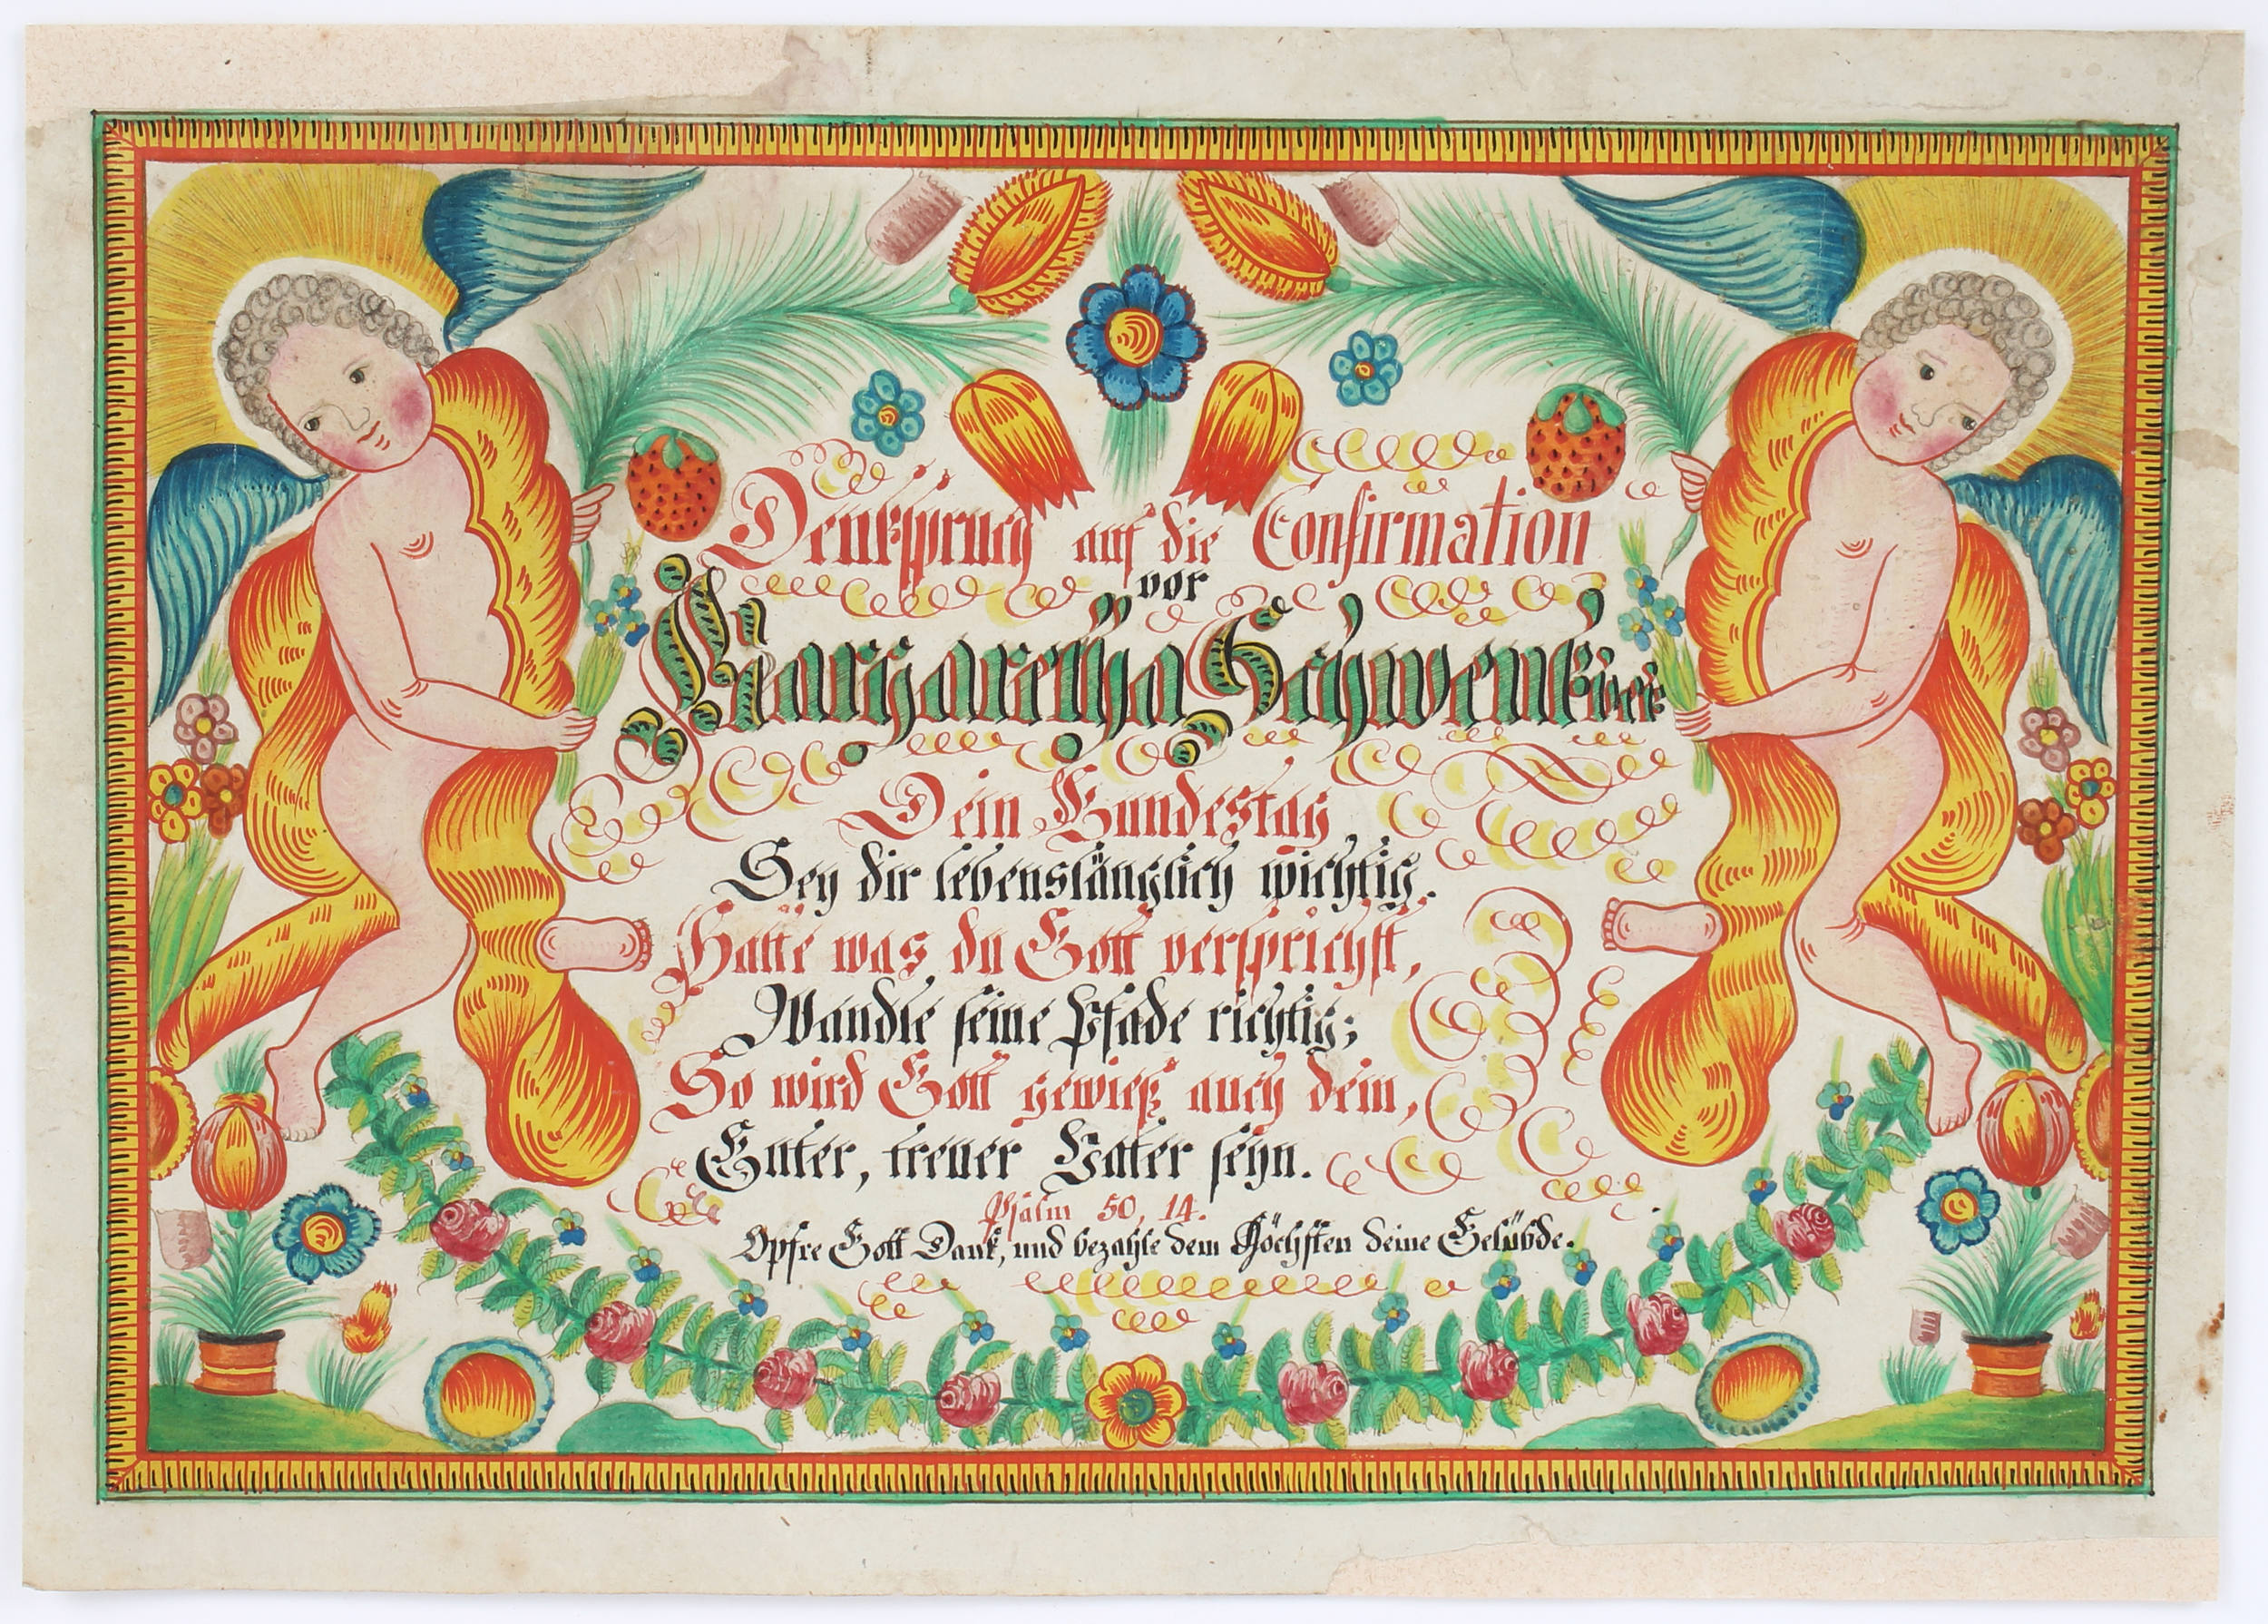 Denkspruch auf die Confirmation
vor
Margaretha Schwenk
Dein Bundestag
Sey dir lebenslänglich wichtig.
Halte was du Gott versprichst,
Wandle seine Pfade richtig;
So wird Gott gewieß auch dein,
Guter, treuer Vater seÿn.
Psalm 50, 14.
Opfre Gott Dank, und bezahle dem Höchsten deine Gelübde.